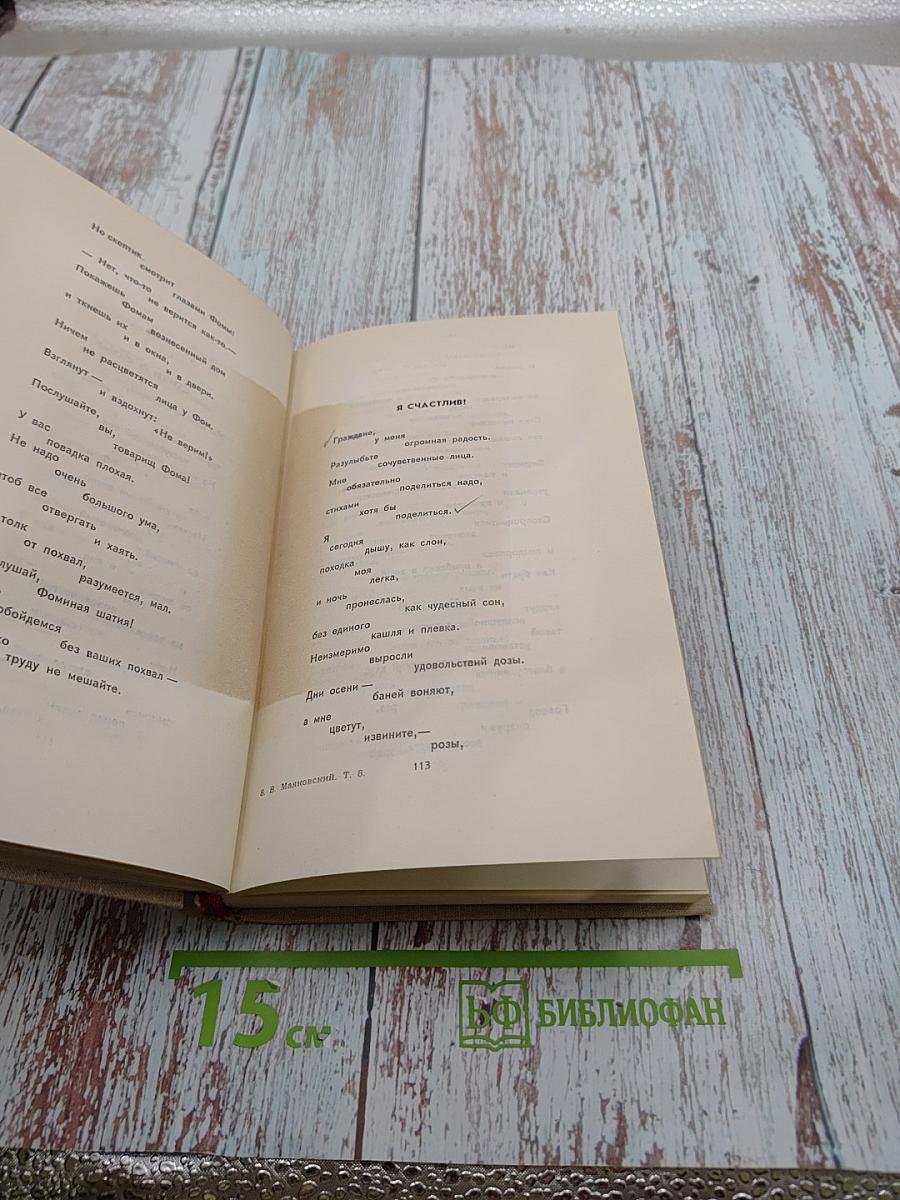 Но скептик
смотрит
глазами Фомы!
— Нет, что-то
не верится как-то.—
Покажешь
Фомам
вознесенный дом
и ткнешь их
и в окна,
и в двери.
Ничем
не расцветятся
лица у Фом.
Взглянут —
и вздохнут: «Не верим!»
Послушайте,
вы,
товарищ Фома!
У вас
повадка плохая.
Не надо
очень
большого ума,
чтоб все
отвергать
и хаять.
толк
от похвал,
разумеется, мал.
слушай,
Фоминая шатия!
обойдемся
без ваших похвал —
труду не мешайте.
Я СЧАСТЛИВ!
Граждане,
у меня
огромная радость.
Разулыбьте
сочувственные лица.
Мне
обязательно
поделиться надо,
стихами
хотя бы
поделиться.
Я
сегодня
дышу, как слон,
походка
моя
легка,
и ночь
пронеслась,
как чудесный сон,
без единого
кашля и плевка.
Неизмеримо
выросли
удовольствий дозы.
Дни осени —
баней воняют,
а мне
цветут,
извините,—
розы,
8. В. Маяковский. Т. 6.
113
15 см
БФ БИБЛИОФАН